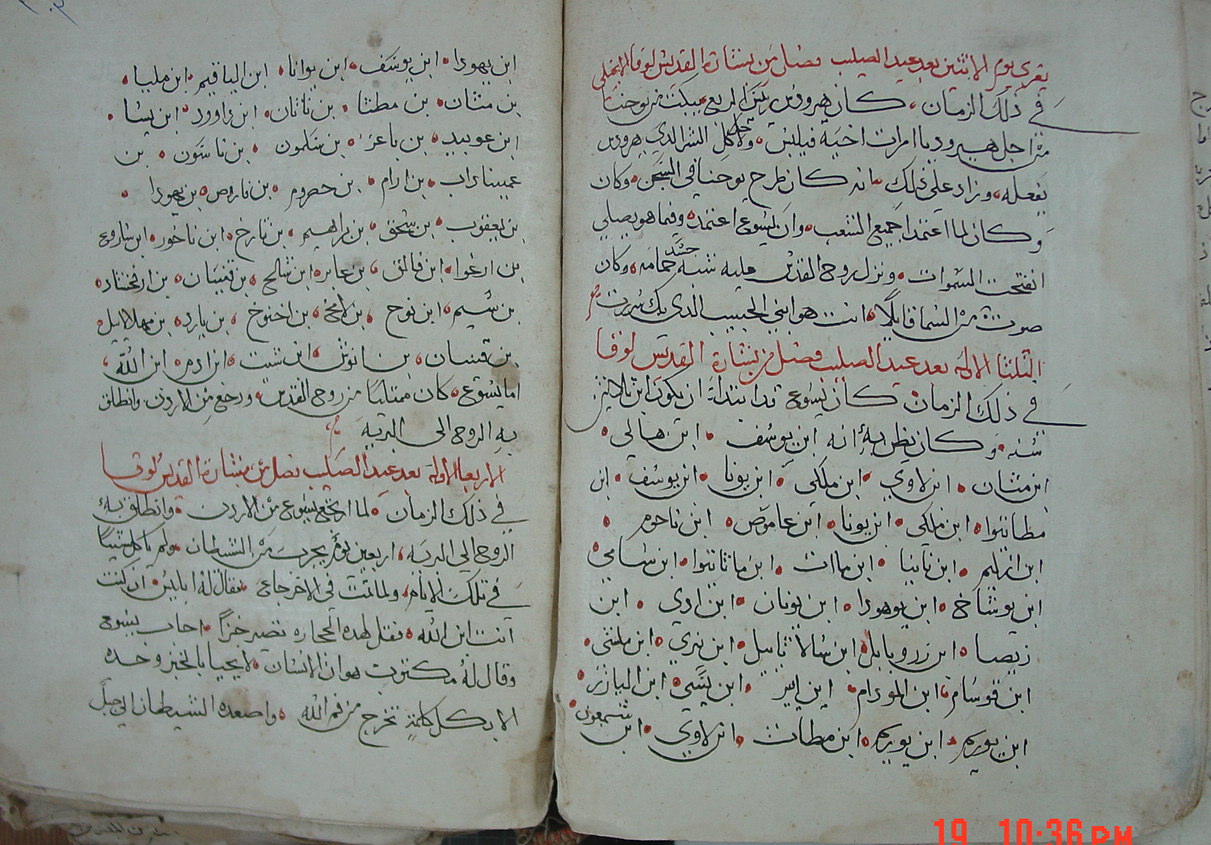 يقرى يوم الاثنين بعد عيد الصليب فصل من بشارة القديس لوقا الانجيلي
في ذلك الزمان، كان هيرودس رييس الربع يبكت من يوحنا
من اجل هيروديا امرات اخيه فيلبس ولاجل كل الشر الذي هيرودس
يفعله، وزاد على ذلك انه كان طرح يوحنا في السجن وكان
وكان لما اعتمد جميع الشعب وان يسوع اعتمد وفيما هو يصلي
انفتحت السموات ونزل روح القدس عليه شبه جسد حمامه وكان
صوت من السما قايلًا انت هو ابني الحبيب الذي بك سررت
الثلثا الاوله بعد عيد الصليب فصل من بشارة القديس لوقا
في ذلك الزمان كان يسوع قد ابتدا ان يكون ابن ثلاثين
سنه وكان نظن به انه ابن يوسف ابن هالي
ابن متتان ابن لاوي ابن ملكي ابن يونا ابن يوسف ابن
مطاتيوا ابن ملكي ابن يونا ابن عاموص ابن ناحوم
ابن ابن ماات ابن ماتاتيوا ابن سامي
ابن يوشاخ ابن يوهودا ابن يونان ابن ادي ابن
ريصا ابن زروبابل ابن سالاتاييل ابن نيري ابن ملشي
ابن قوسام ابن المودام ابن ايير ابن يسي ابن اليازر
ابن يوريم ابن يوريم ابن مطات ابن لاوي ابن شمعون
ابن يهودا ابن يوسف ابن يوانا ابن الياقيم ابن مليا
بن متان بن مطتا بن ناتان ابن داوود ابن يسا
ابن عوبيد بن باعز بن سلمون بن ناسون بن
عميناداب بن ارام بن حصروم بن فارص بن يهودا
بن يعقوب بن اسحق بن براهيم بن تارخ ابن ناخور ابن ساروع
بن ارغوا ابن فالق بن عابر ابن شالح بن قينان بن ارفخشاد
بن شيم ابن نوح بن لامخ بن اخنوخ بن يارد بن مهلالايل
بن قينان بن انوش ابن شت ابن ادم ابن الله
اما يسوع كان ممتليًا من روح القدس ورجع من الاردن وانطلق
به الروح الى البريه
الاربعا الاوله بعد عيد الصليب فصل من بشارة القديس لوقا
في ذلك الزمان لما ارتجع يسوع من الاردن وانطلق به
الروح الى البريه اربعين يوم يجرب من الشيطان ولم ياكل شيًا
في تلك الايام ولما تمت في الاخر جاع فقال له ابليس ان كنت
انت ابن الله فقل لهذه الحجاره تصير خبزًا اجاب يسوع
وقال له مكتوب هو ان الانسان لا يحيا بالخبز وحده
الا بكل كلمة تخرج من فم الله واصعده الشيطان الى جبل
19 10:36 PM